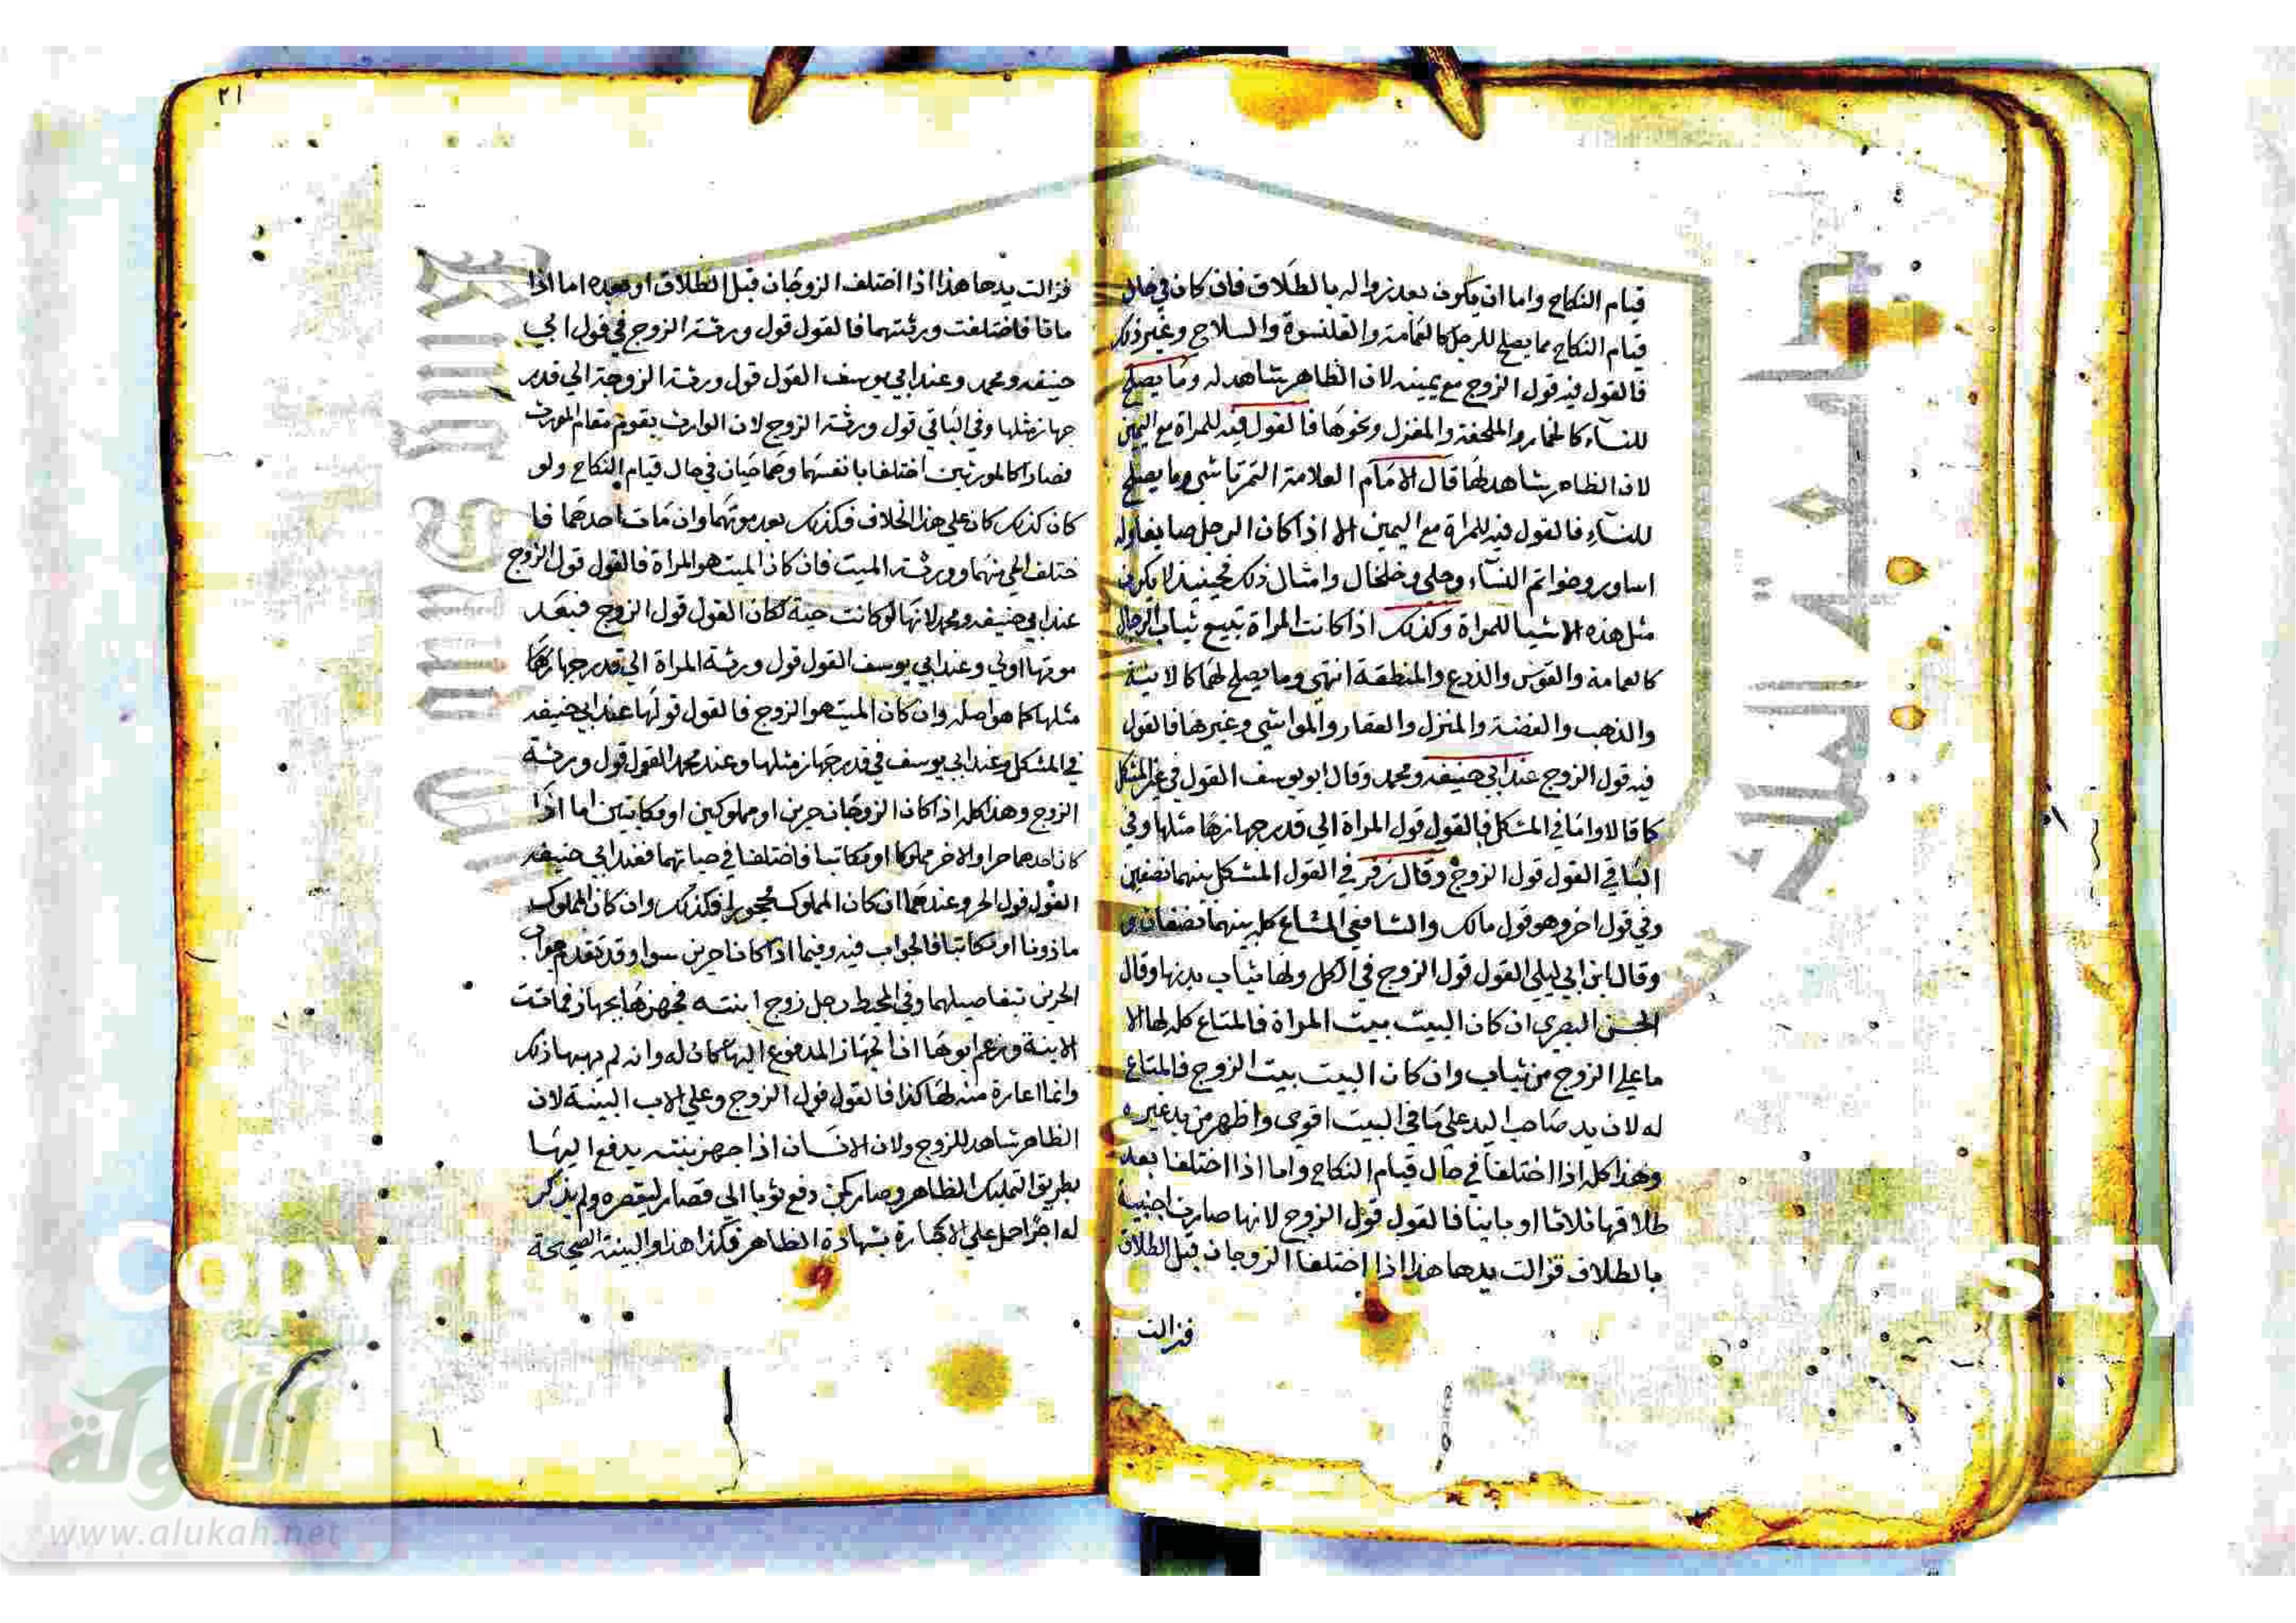 قيام النكاح واما ان يكون بعد زواله بالطلاق فان كان في حال
قيام النكاح مما يصلح للرجل كالعمامة والقلنسوة والسلاح وغير ذلك
فالقول فيه قول الزوج مع يمينه لان الظاهر شاهد له وما يصلح
للنساء كالخمار والملحفة والمغزل ونحوها فالقول فيه للمراة مع اليمين
لان الظاهر شاهد لها قال الامام العلامة التمرتاشي وما يصلح
للنساء فالقول فيه للمراة مع اليمين الا اذا كان الرجل صايغا وله
اساوير وخواتم النساء وحلي وخلخال وامثال ذلك فحينيذ لا يكون
مثل هذه الاشيا للمراة وكذلك اذا كانت المراة تبيع ثياب الرجال
كالعمامة والقوس والدرع والمنطقة انتهي وما يصلح لهما كالانية
والذهب والفضة والمنزل والعقار والمواشي وغيرها فالقول
فيه قول الزوج عند ابي حنيفه ومحمد وقال ابو يوسف القول في غير المشكل
كما قالا واما في المشكل فالقول قول المراة الي قدر جهازها مثلها وفي
الباقي القول قول الزوج وقال زفر في القول المشكل بينهما نصفين
وفي قول اخر وهو قول مالك والشافعي المشاع كله بينهما نصفان
وقال ابن ابي ليلي القول قول الزوج في الكل ولها ثياب بدنها وقال
الحسن البصري ان كان البيت بيت المراة فالمتاع كله لها الا
ما علي الزوج من ثياب وان كان البيت بيت الزوج فالمتاع
له لان يد صاحب اليد علي ما في البيت اقوي واظهر من يد غيره
وهذا كله اذا اختلفا في حال قيام النكاح واما اذا اختلفا بعد
طلاقها ثلاثا او باينا فالقول قول الزوج لانها صارت اجنبية
بالطلاق فزالت يدها هذا اذا اختلفا الزوجان قبل الطلاق
فزالت
٢١
فزالت يدها هذا اذا اختلف الزوجان قبل الطلاق او بعده اما اذا
ماتا فاختلفت ورثتهما فالقول قول ورثة الزوج في قول ابي
حنيفه ومحمد وعند ابي يوسف القول قول ورثة الزوجة الي قدر
جهاز مثلها وفي الباقي قول ورثة الزوج لان الوارث يقوم مقام المورث
فصارا كالمورثين اختلفا بانفسهما وهما حيان في حال قيام النكاح ولو
كان كذلك كان علي هذا الخلاف فكذلك بعد موتهما وان مات احدهما فا
ختلف الحي منهما وورثة الميت فان كان الميت هو المراة فالقول قول الزوج
عند ابي حنيفه ومحمد لانها لو كانت حية لكان القول قول الزوج فبعد
موتها اولي وعند ابي يوسف القول قول ورثة المراة الي قدر جهازها
مثلها كما هو اصله وان كان الميت هو الزوج فالقول قولها عند ابي حنيفه
في المشكل وعند ابي يوسف في قدر جهاز مثلها وعند محمد القول قول ورثة
الزوج وهذا كله اذا كان الزوجان حرين او مملوكين او مكاتبين اما اذا
كان احدهما حرا والاخر مملوكا او مكاتبا فاختلفا في حياتهما فعند ابي حنيفه
القول قول الحر وعندهما ان كان المملوك محجورا فكذلك وان كان المملوك
ماذونا او مكاتبا فالجواب فيه وفيما اذا كانا حرين سوا وقد تقدم جواب
الحرين تبفاصيلهما وفي المحيط رجل زوج ابنته فجهزها بجهاز فماتت
الابنة وزعم ابوها ان الجهاز المدفوع اليها كان له وانه لم يهبها ذلك
وانما اعاره منه لها كذا فالقول قول الزوج وعلي الاب البينة لان
الظاهر شاهد للزوج ولان الانسان اذا جهز بنته يدفع اليها
بطريق التمليك الظاهر وصار كمن دفع ثوبا الي قصار ليقصره ولم يذكر
له اجرا حمل علي الاجارة بشهادة الظاهر فكذا هذا والبينة الصحيحة
Copyr
versity
الألوكة
www.alukah.net